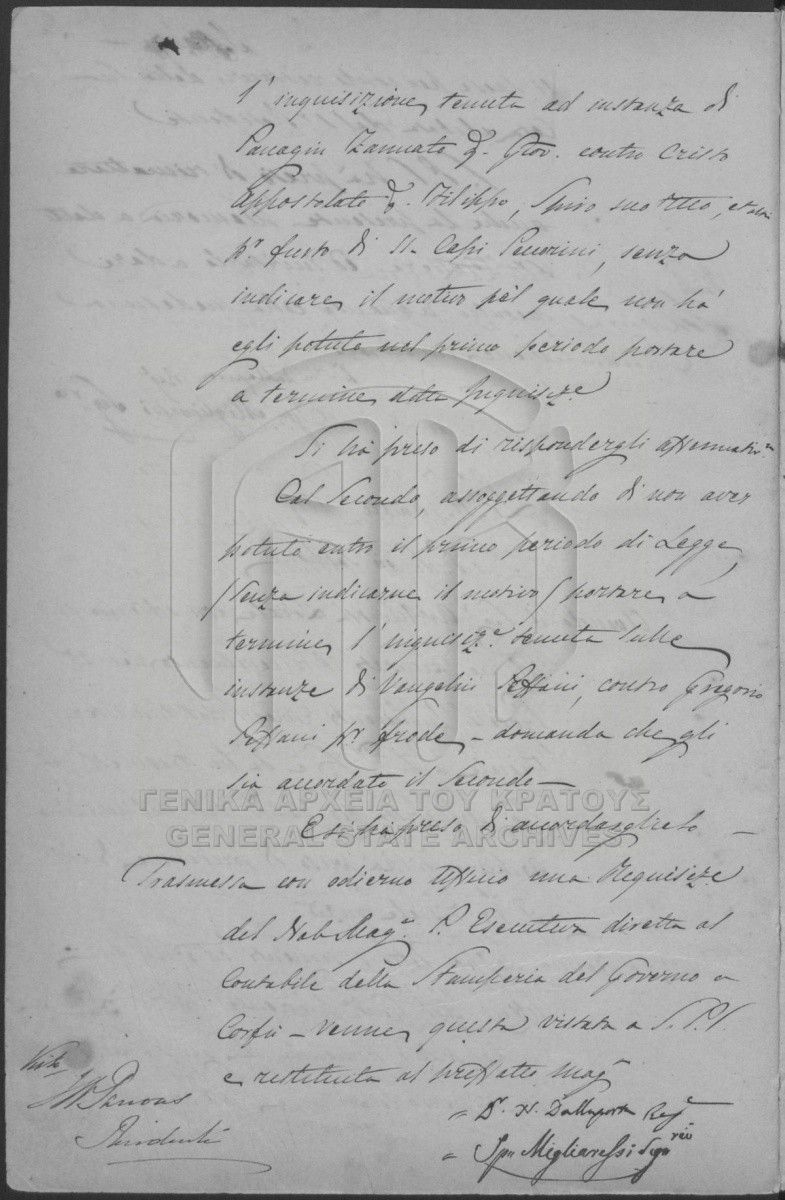 l'inquisizione tenuta ad instanza di
Panagin Zannato q. Giov. contro Cristo
Appostolato q. Filippo, Spiro suo
pr. furto di N. Capi Pecorini, senza
indicare il motivo pel quale non ha
egli potuto nel primo periodo portare
a termine detta Inquisize
Si ha preso di rispondergli
Col Secondo, assoggettando di non aver
potuto entro il primo periodo di Legge
(senza indicarne il motivo) portare a
termine l'inquisize tenuta sulle
instanze di Vangelin contro Gregorio
pr. frode – domanda che gli
sia accordato il Secondo –
E si ha preso di accordarglielo –
ΓΕΝΙΚΑ ΑΡΧΕΙΑ ΤΟΥ ΚΡΑΤΟΥΣ
GENERAL STATE ARCHIVES
Trasmessa con odierno Officio una Requisize
del Nob. Mage. P. Esecutiva diretta al
Contabile della Stamperia del Governo a
Corfù – venne questa vistata a S.P.
e restituita al prefatto Mage
Visto
Presidente
Dr. N. Dallaporta Rege
Spn Migliaressi Segrio